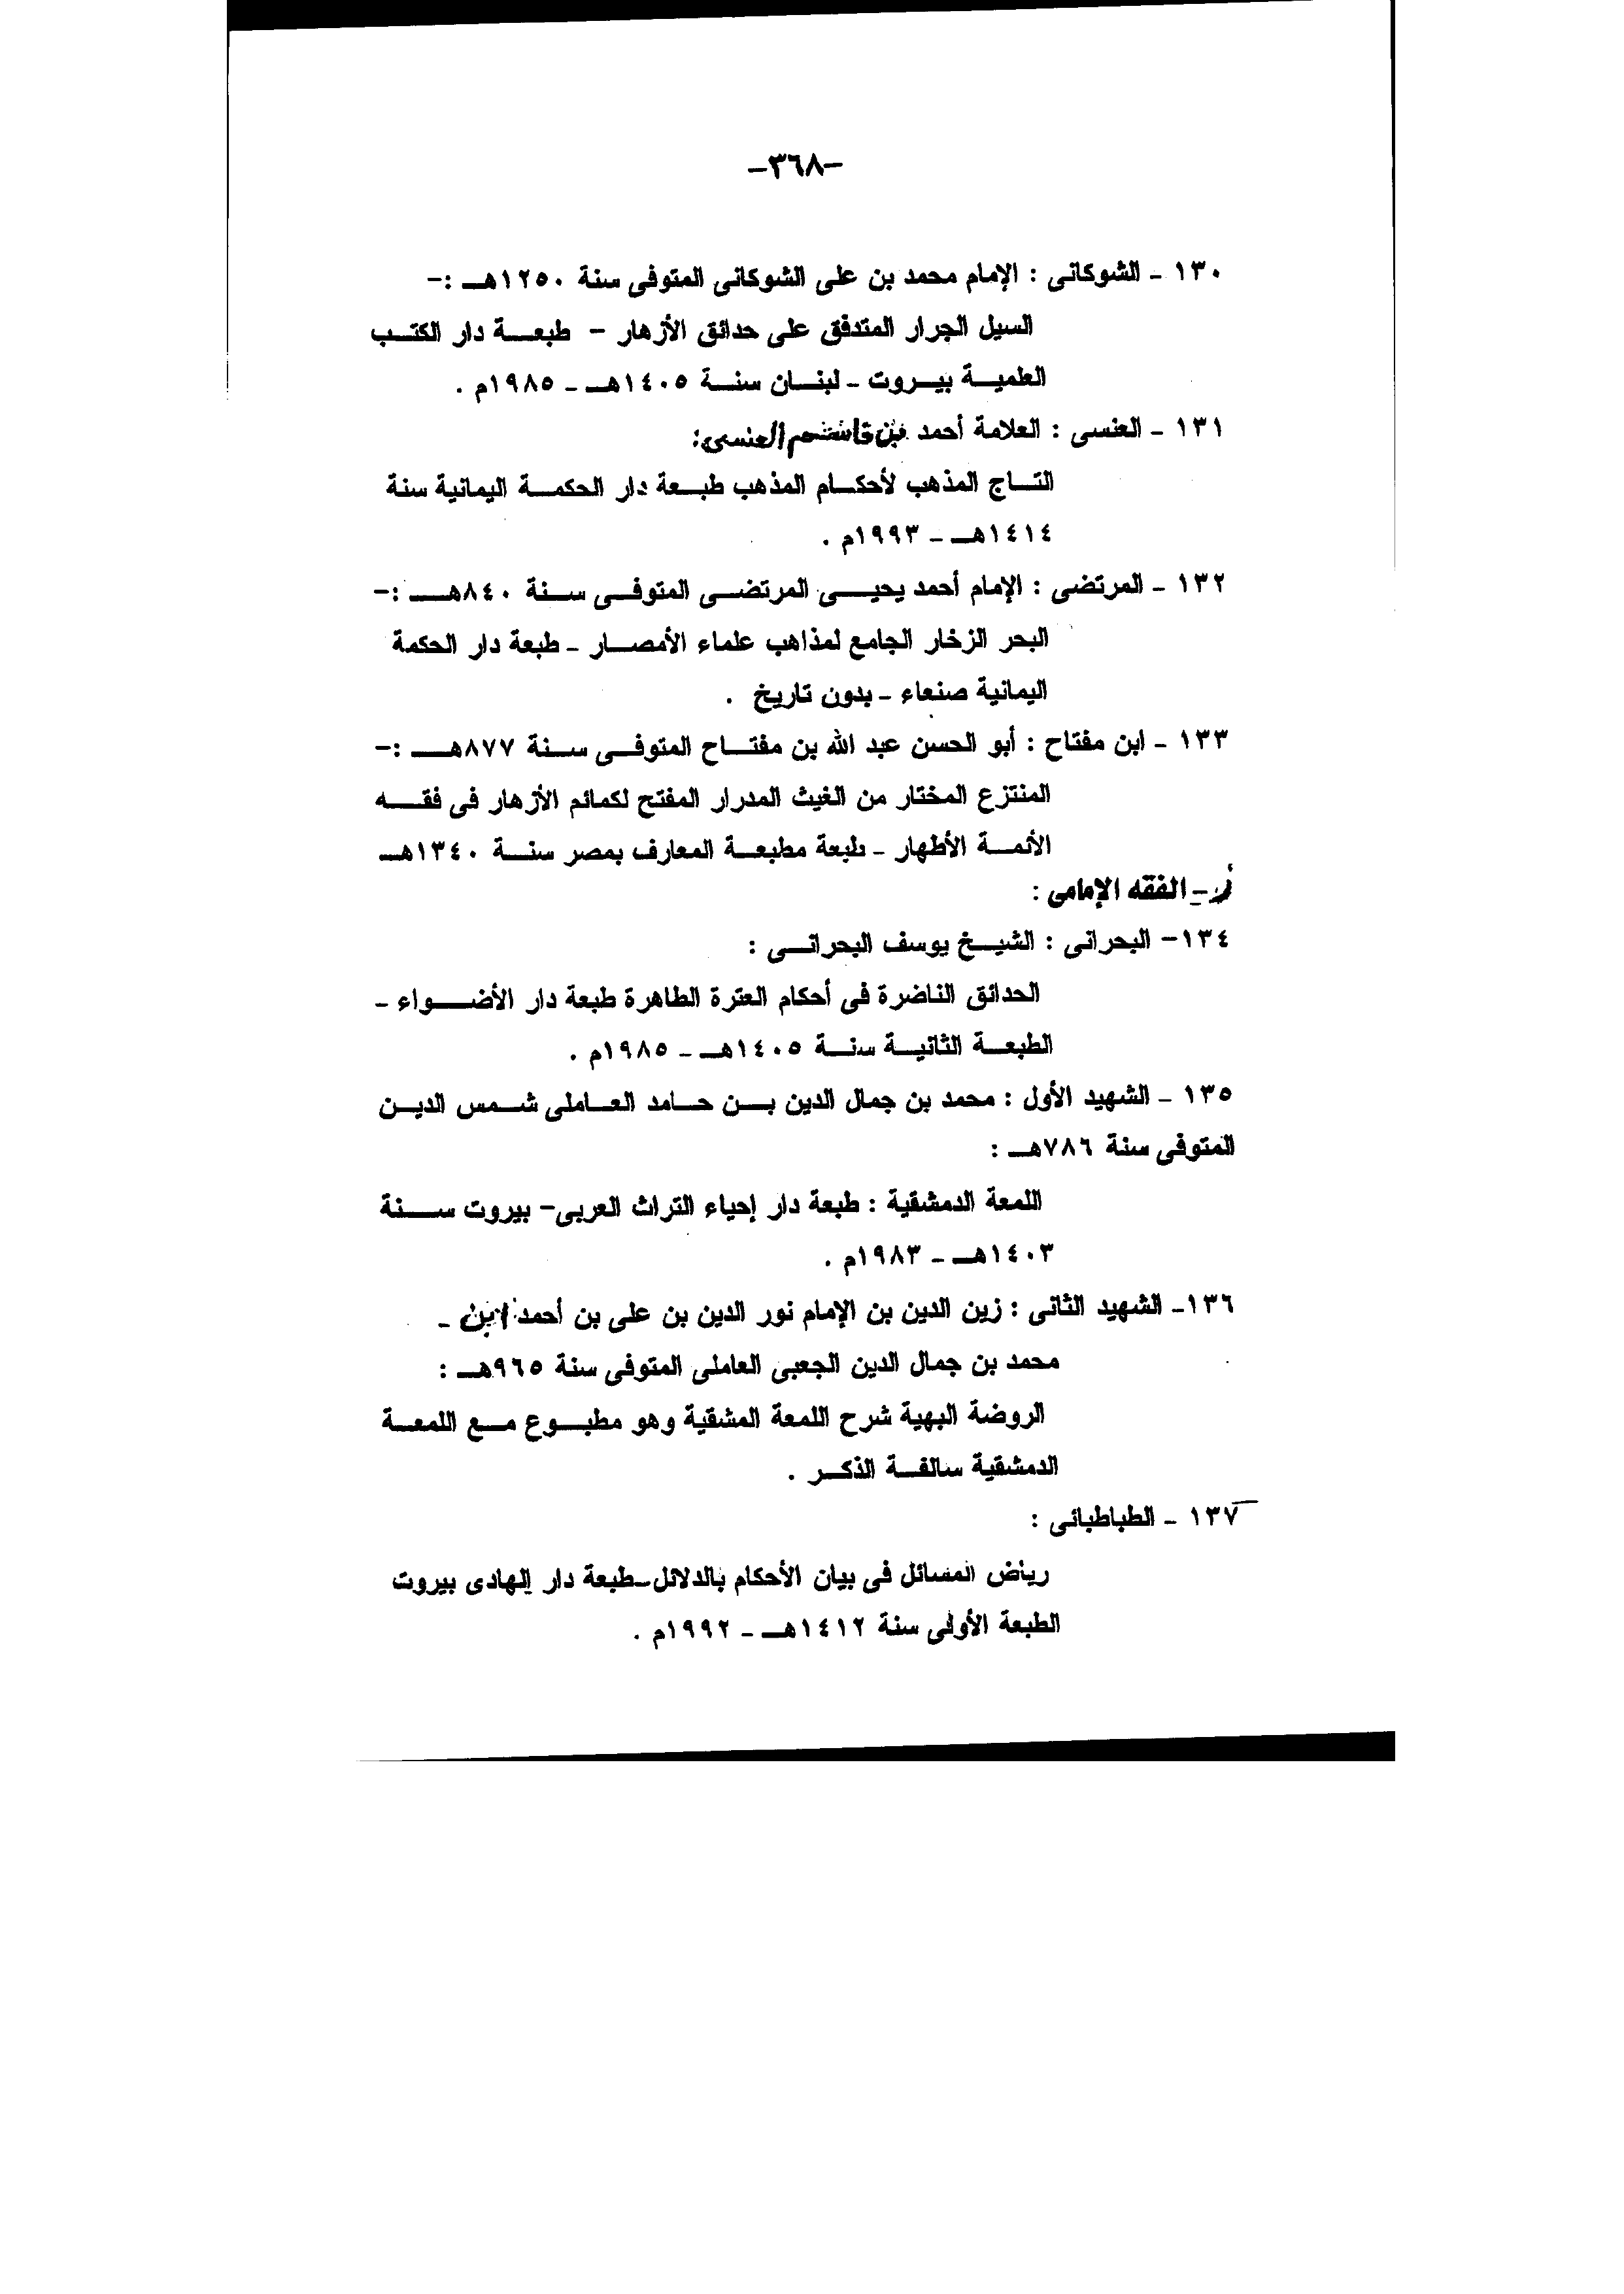 -٣٦٨-
١٣٠ - الشوكانى : الإمام محمد بن على الشوكانى المتوفى سنة ١٢٥٠هـ :-
السيل الجرار المتدفق على حدائق الأزهار - طبعة دار الكتب
العلمية بيروت - لبنان سنة ١٤٠٥هـ - ١٩٨٥م .
١٣١ - العنسى : العلامة أحمد بن قاسم العنسى:
التاج المذهب لأحكام المذهب طبعة دار الحكمة اليمانية سنة
١٤١٤هـ - ١٩٩٣م .
١٣٢ - المرتضى : الإمام أحمد يحيى المرتضى المتوفى سنة ٨٤٠هـ :-
البحر الزخار الجامع لمذاهب علماء الأمصار - طبعة دار الحكمة
اليمانية صنعاء - بدون تاريخ .
١٣٣ - ابن مفتاح : أبو الحسن عبد الله بن مفتاح المتوفى سنة ٨٧٧هـ :-
المنتزع المختار من الغيث المدرار المفتح لكمائم الأزهار فى فقه
الأئمة الأطهار - طبعة مطبعة المعارف بمصر سنة ١٣٤٠هـ
- الفقه الإمامى :
١٣٤- البحرانى : الشيخ يوسف البحرانى :
الحدائق الناضرة فى أحكام العترة الطاهرة طبعة دار الأضواء -
الطبعة الثانية سنة ١٤٠٥هـ - ١٩٨٥م .
١٣٥ - الشهيد الأول : محمد بن جمال الدين بن حامد العاملى شمس الدين
المتوفى سنة ٧٨٦هـ :
اللمعة الدمشقية : طبعة دار إحياء التراث العربى- بيروت سنة
١٤٠٣هـ - ١٩٨٣م .
١٣٦- الشهيد الثانى : زين الدين بن الإمام نور الدين بن على بن أحمد ابن -
محمد بن جمال الدين الجعبى العاملى المتوفى سنة ٩٦٥هـ :
الروضة البهية شرح اللمعة المشقية وهو مطبوع مع اللمعة
الدمشقية سالفة الذكر .
١٣٧ - الطباطبائى :
رياض المسائل فى بيان الأحكام بالدلائل-طبعة دار الهادى بيروت
الطبعة الأولى سنة ١٤١٢هـ - ١٩٩٢م .